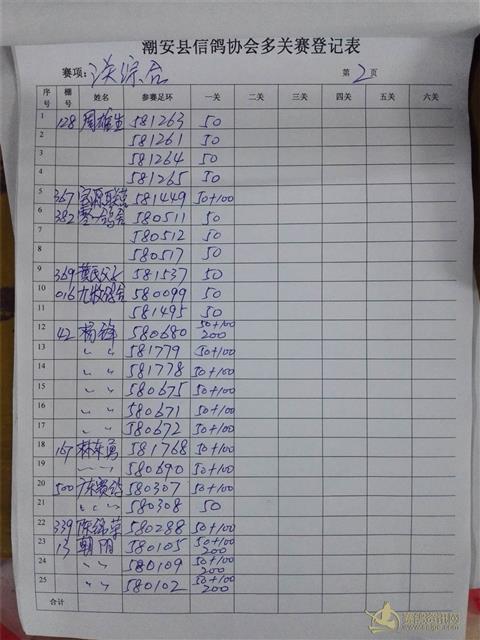 潮安县信鸽协会多关赛登记表
赛项: 关综合 第2页
序号 棚号 姓名 参赛足环 一关 二关 三关 四关 五关 六关
1 128 周雄生 581263 50
2 581261 50
3 581264 50
4 581265 50
5 367 581449 50+100
6 382 鸽舍 580511 50
7 580512 50
8 580517 50
9 369 黄氏父子 581537 50
10 016 九牧鸽舍 580099 50
11 581495 50
12 42 杨锋 580680 50+100 200
13 〃 〃 581779 50+100
14 〃 〃 581778 50+100
15 〃 〃 580675 50+100
16 〃 〃 580671 50+100
17 〃 〃 580672 50+100
18 167 林东勇 581768 50+100
19 〃 〃 580690 50+100
20 500 广东赛鸽 580307 50+100
21 〃 〃 580308 50
22 339 陈锦荣 580288 50+100
23 13 朝阳 580105 50+100 200
24 〃 〃 580109 50+100 200
25 〃 〃 580102 50+100 200
合计